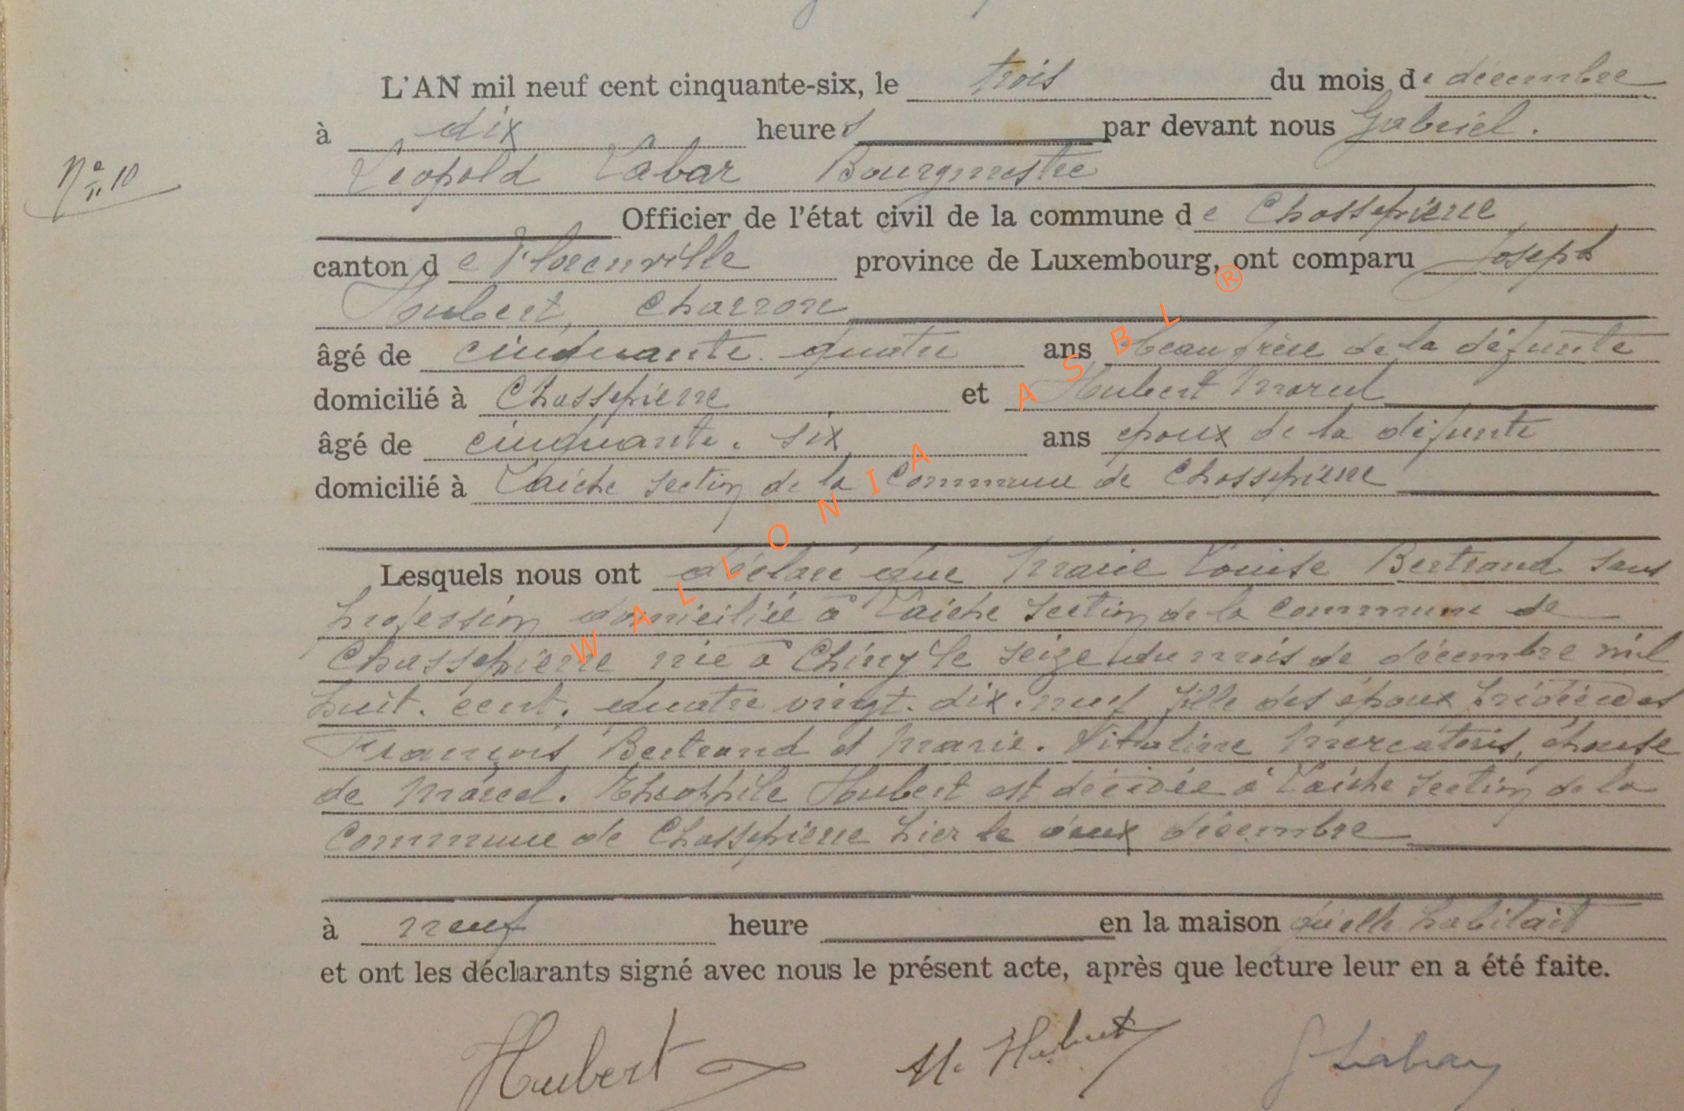 L'AN mil neuf cent cinquante-six, le trois du mois de décembre
à dix heures par devant nous Gabriel.
Nº 10
Léopold Labar Bourgmestre
Officier de l'état civil de la commune de Chassepierre
canton de Florenville province de Luxembourg, ont comparu Joseph
Hubert, Charron
âgé de cinquante. quatre ans beau frère de la défunte
domicilié à Chassepierre et Hubert Marcel
âgé de cinquante. six ans époux de la défunte
domicilié à Laiche section de la Commune de Chassepierre
Lesquels nous ont déclaré que Marie Louise Bertrand sans
profession domiciliée à Laiche section de la Commune de
Chassepierre née à Chiny le seize du mois de décembre mil
huit. cent. quatre vingt. dix. neuf fille des époux prédécédés
François Bertrand et Marie. Vitaline Mercatoris, épouse
de Marcel. Théophile Hubert est décédée à Laiche section de la
Commune de Chassepierre hier le deux décembre
à neuf heure en la maison qu'elle habitait
et ont les déclarants signé avec nous le présent acte, après que lecture leur en a été faite.
Hubert M. Hubert G Labar
WALLONIA ASBL ®